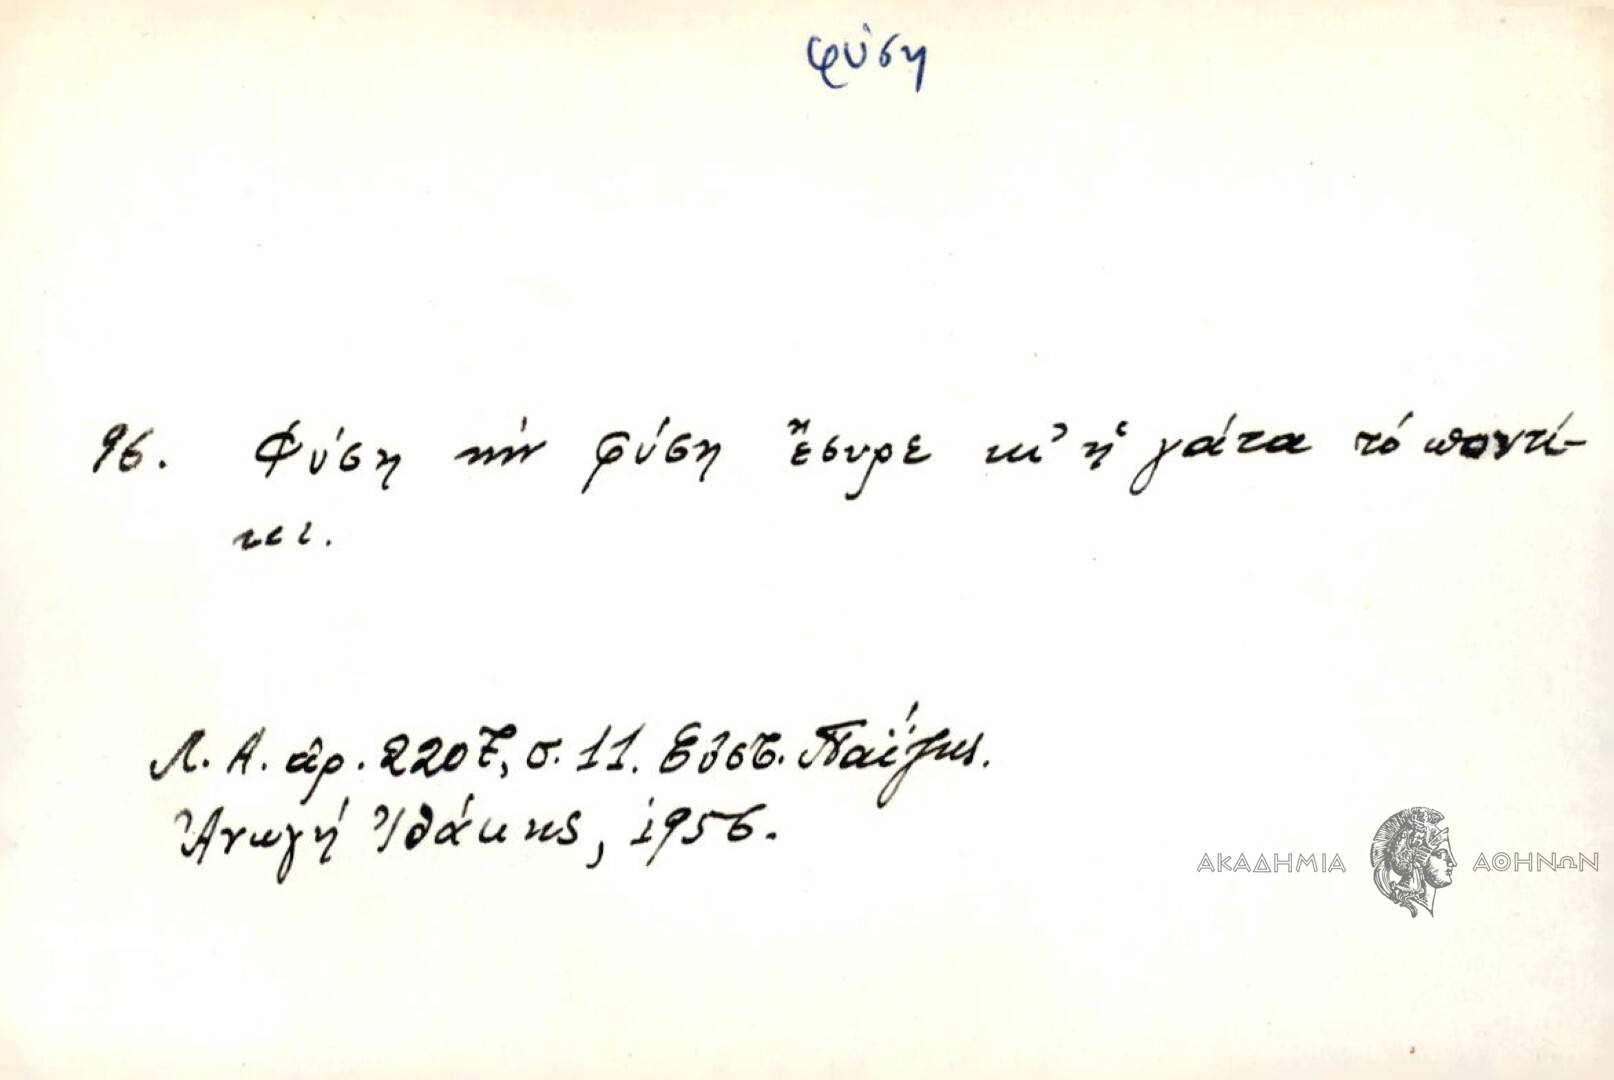 φύση
96. Φύση τήν φύση ἔσυρε κι' ἡ γάτα τό ποντί-
κι.
Λ. Α. ἀρ. 2207, σ. 11. Εὐστ. Παΐζης.
Ἀνωγή Ἰθάκης, 1956.
ΑΚΑΔΗΜΙΑ ΑΘΗΝΩΝ